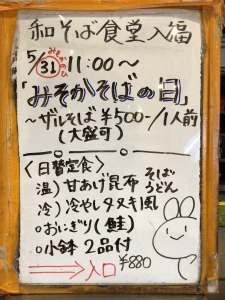 和そば食堂入福
5/31 みそかのひ 11:00〜
「みそかそばの日」
〜ザルそば¥500-/1人前
(大盛可)
〈日替定食〉
温) 甘あげ昆布 そば
冷) 冷やしタヌキ風 うどん
○おにぎり(鮭)
○小鉢2品付
入口 ¥880